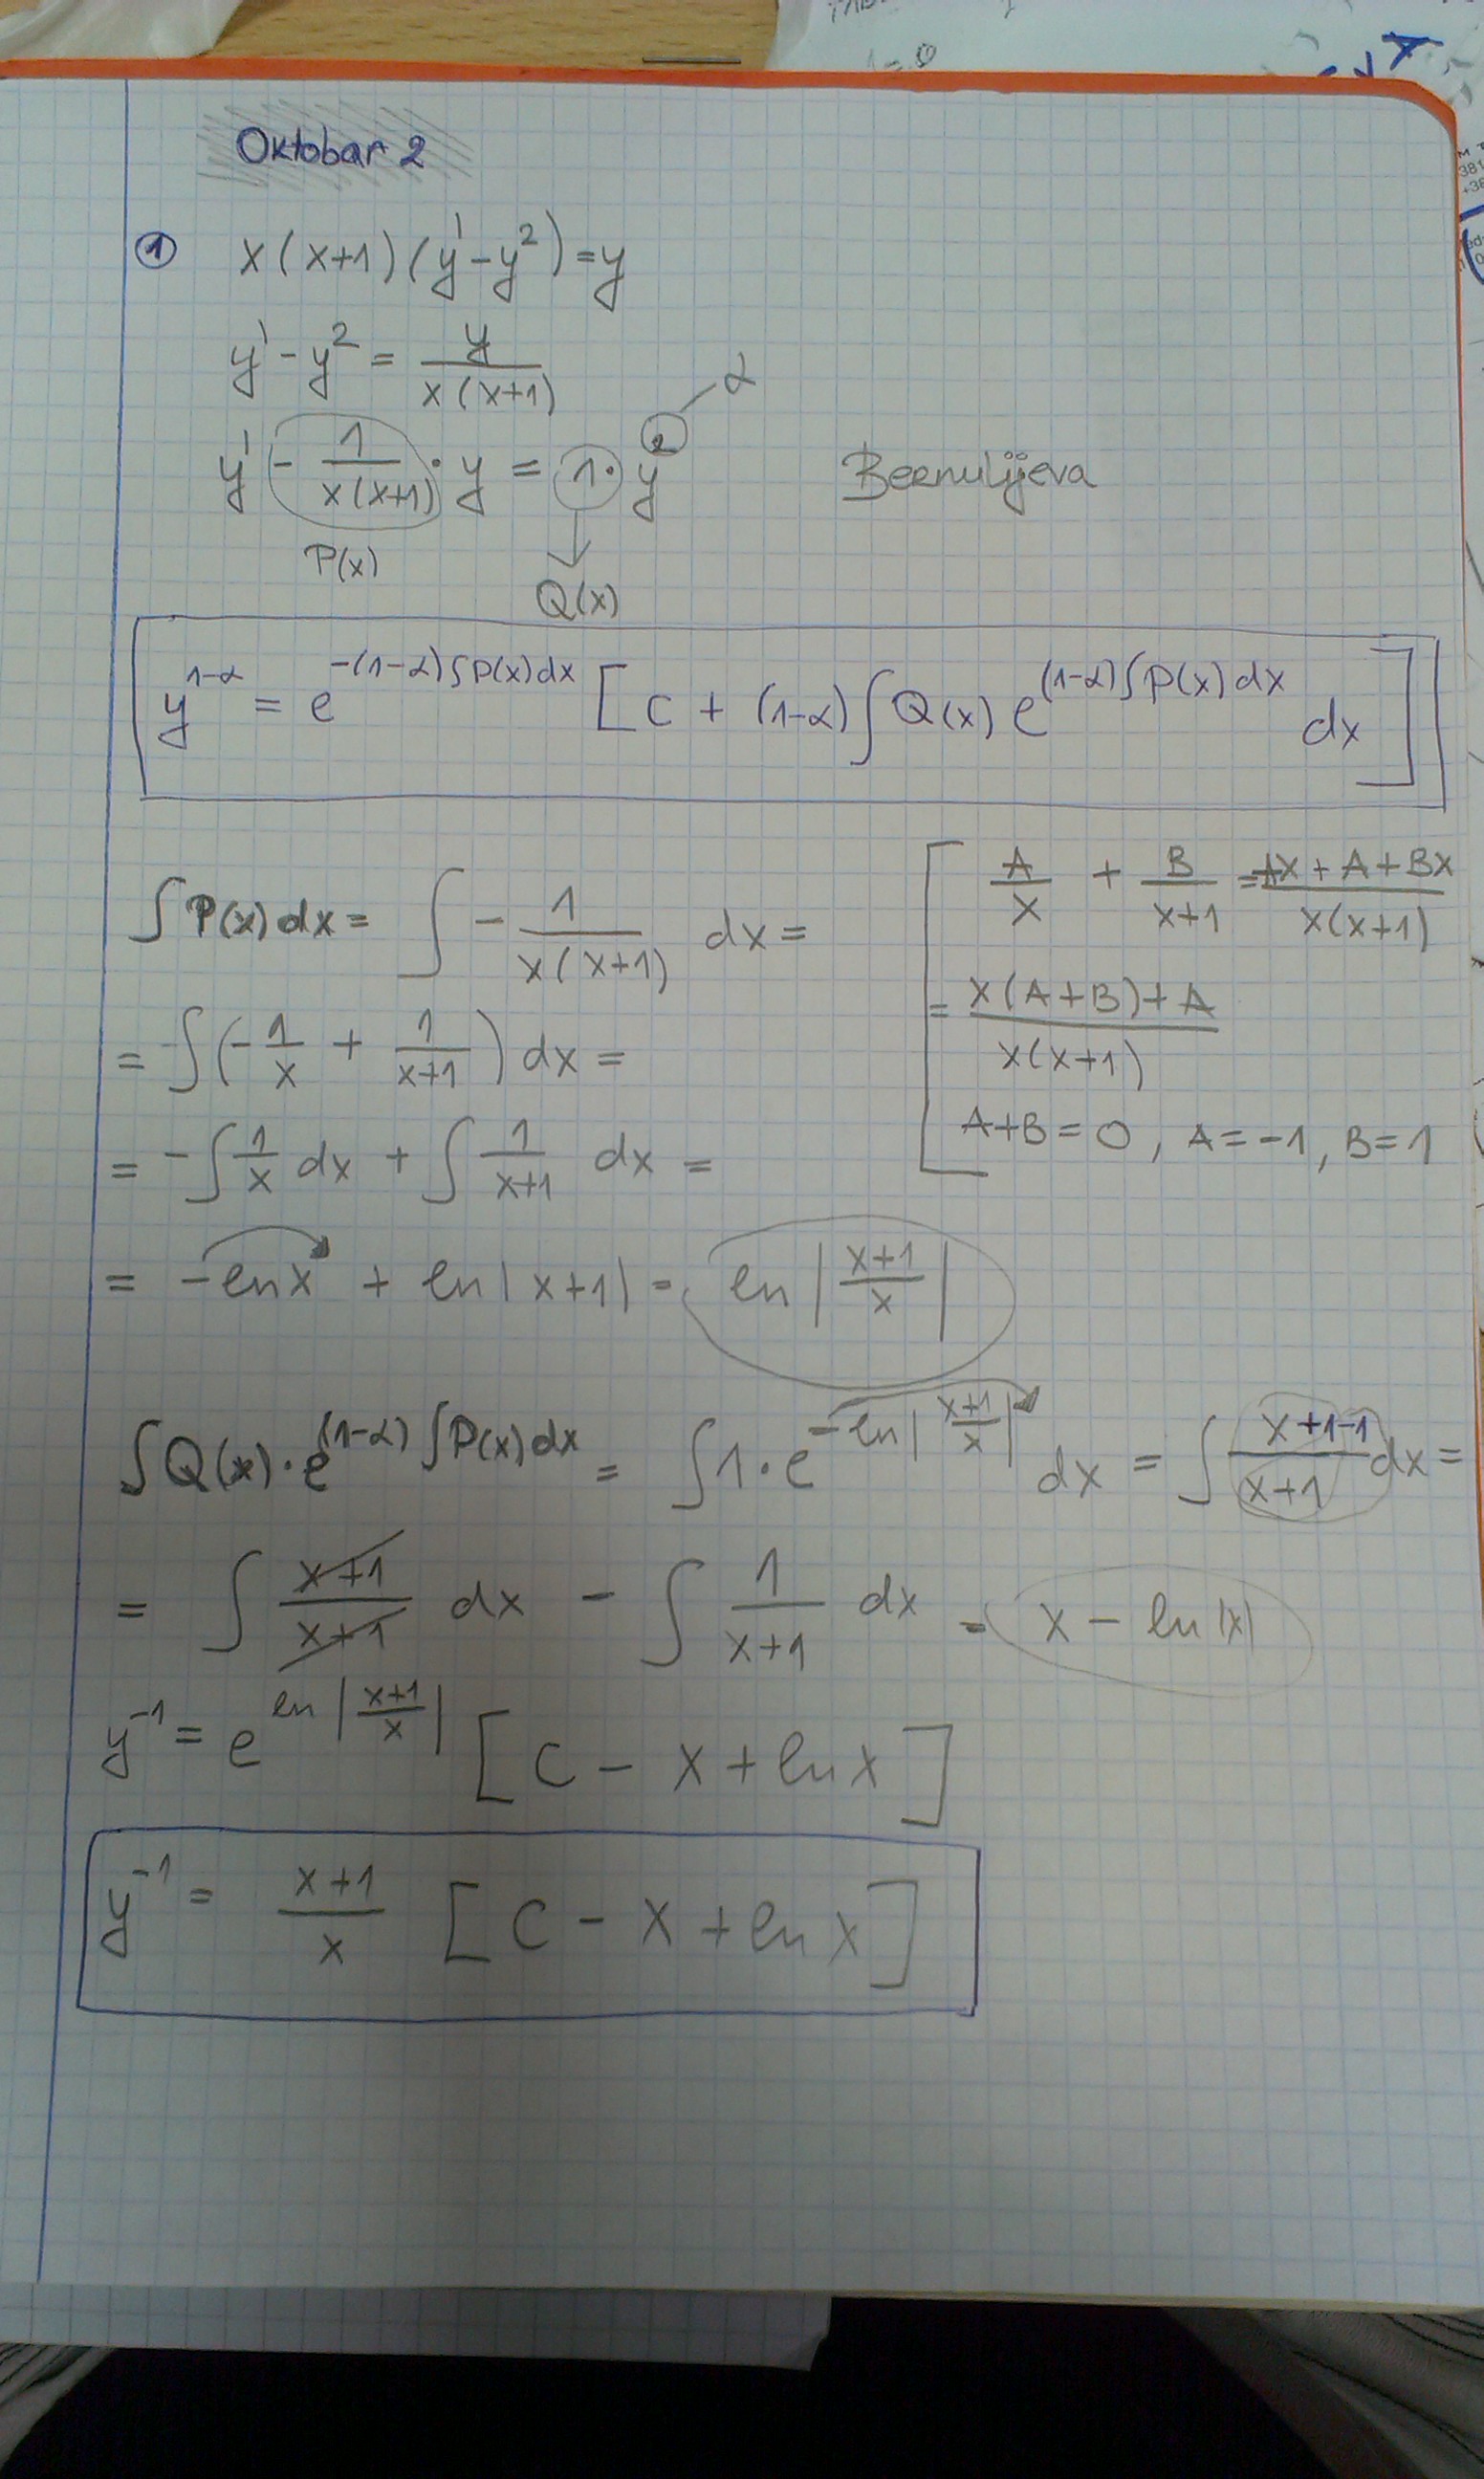 Oktobar 2
① x(x+1)(y'-y²)=y
y'-y² = y/(x(x+1))
y' - 1/(x(x+1)) · y = 1 · y² α Bernulijeva
P(x)
Q(x)
y^(1-α) = e^(-(1-α)∫P(x)dx) [c + (1-α)∫Q(x) e^((1-α)∫P(x)dx) dx]
∫P(x)dx = ∫ - 1/(x(x+1)) dx =
= ∫(-1/x + 1/(x+1)) dx =
= -∫1/x dx + ∫ 1/(x+1) dx =
= -ln x + ln|x+1| = ln|(x+1)/x|
[ A/x + B/(x+1) = (Ax+A+Bx)/(x(x+1))
= (x(A+B)+A)/(x(x+1))
A+B=0, A=-1, B=1
∫Q(x)·e^((1-α)∫P(x)dx) = ∫1·e^(-ln|(x+1)/x|) dx = ∫ (x+1-1)/(x+1) dx =
= ∫ (x+1)/(x+1) dx - ∫ 1/(x+1) dx = x - ln|x|
y^(-1) = e^(ln|(x+1)/x|) [c - x + ln x]
y^(-1) = (x+1)/x [c - x + ln x]